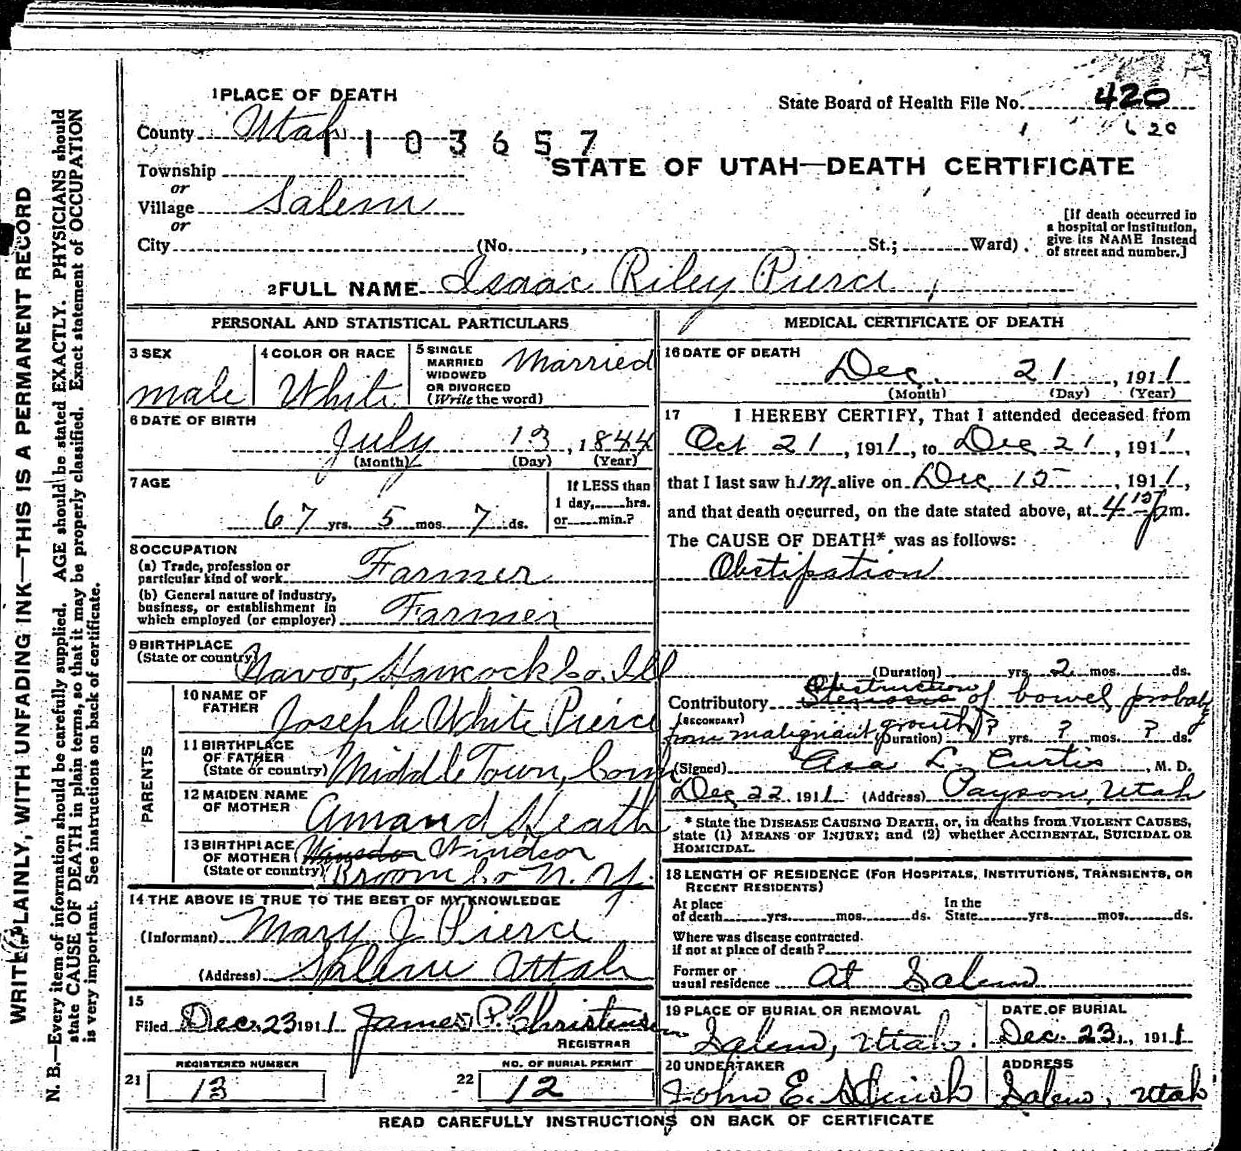 1 PLACE OF DEATH
State Board of Health File No. 420
County Utah
1 1 0 3 6 5 7
1 620
STATE OF UTAH—DEATH CERTIFICATE
Township
or
Village Salem
or
City (No. , St.; Ward)
[If death occurred in
a hospital or institution,
give its NAME instead
of street and number.]
2 FULL NAME Isaac Riley Pierce
PERSONAL AND STATISTICAL PARTICULARS
3 SEX
male
4 COLOR OR RACE
White
5 SINGLE
MARRIED
WIDOWED
OR DIVORCED
(Write the word)
Married
6 DATE OF BIRTH
July 13, 1844
(Month) (Day) (Year)
7 AGE
67 yrs. 5 mos. 7 ds.
If LESS than
1 day, hrs.
or min.?
8 OCCUPATION
(a) Trade, profession or
particular kind of work Farmer
(b) General nature of industry,
business, or establishment in
which employed (or employer) Farmer
9 BIRTHPLACE
(State or country) Navoo, Hancock Co. Ill
PARENTS
10 NAME OF
FATHER Joseph White Pierce
11 BIRTHPLACE
OF FATHER
(State or country) Middle Town, Conn
12 MAIDEN NAME
OF MOTHER Amand Heath
13 BIRTHPLACE
OF MOTHER Windsor
(State or country) Broom Co N. Y.
14 THE ABOVE IS TRUE TO THE BEST OF MY KNOWLEDGE
(Informant) Mary J. Pierce
(Address) Salem Utah
15
Filed Dec. 23 1911 James P. Christensen
REGISTRAR
REGISTERED NUMBER
21 13
NO. OF BURIAL PERMIT
22 12
MEDICAL CERTIFICATE OF DEATH
16 DATE OF DEATH
Dec. 21, 1911
(Month) (Day) (Year)
17 I HEREBY CERTIFY, That I attended deceased from
Oct 21, 1911, to Dec. 21, 1911,
that I last saw him alive on Dec 15, 1911,
and that death occurred, on the date stated above, at 4 15 pm.
The CAUSE OF DEATH* was as follows:
Obstipation
(Duration) yrs. 2 mos. ds.
Contributory Obstruction of bowel, probably
(SECONDARY)
from malignant growth
(Duration) ? yrs. ? mos. ? ds.
(Signed) Asa L. Curtis, M. D.
Dec 22 1911 (Address) Payson, Utah
* State the DISEASE CAUSING DEATH, or, in deaths from VIOLENT CAUSES,
state (1) MEANS OF INJURY; and (2) whether ACCIDENTAL, SUICIDAL OR
HOMICIDAL.
18 LENGTH OF RESIDENCE (FOR HOSPITALS, INSTITUTIONS, TRANSIENTS, OR
RECENT RESIDENTS)
At place
of death yrs. mos. ds.
In the
State yrs. mos. ds.
Where was disease contracted.
If not at place of death?
Former or
usual residence At Salem
19 PLACE OF BURIAL OR REMOVAL
Salem, Utah.
DATE OF BURIAL
Dec. 23, 1911
20 UNDERTAKER
John E.
ADDRESS
Salem, Utah
READ CAREFULLY INSTRUCTIONS ON BACK OF CERTIFICATE
WRITE PLAINLY, WITH UNFADING INK—THIS IS A PERMANENT RECORD
N. B.—Every item of information should be carefully supplied. AGE should be stated EXACTLY. PHYSICIANS should
state CAUSE OF DEATH in plain terms, so that it may be properly classified. Exact statement of OCCUPATION
is very important. See instructions on back of certificate.